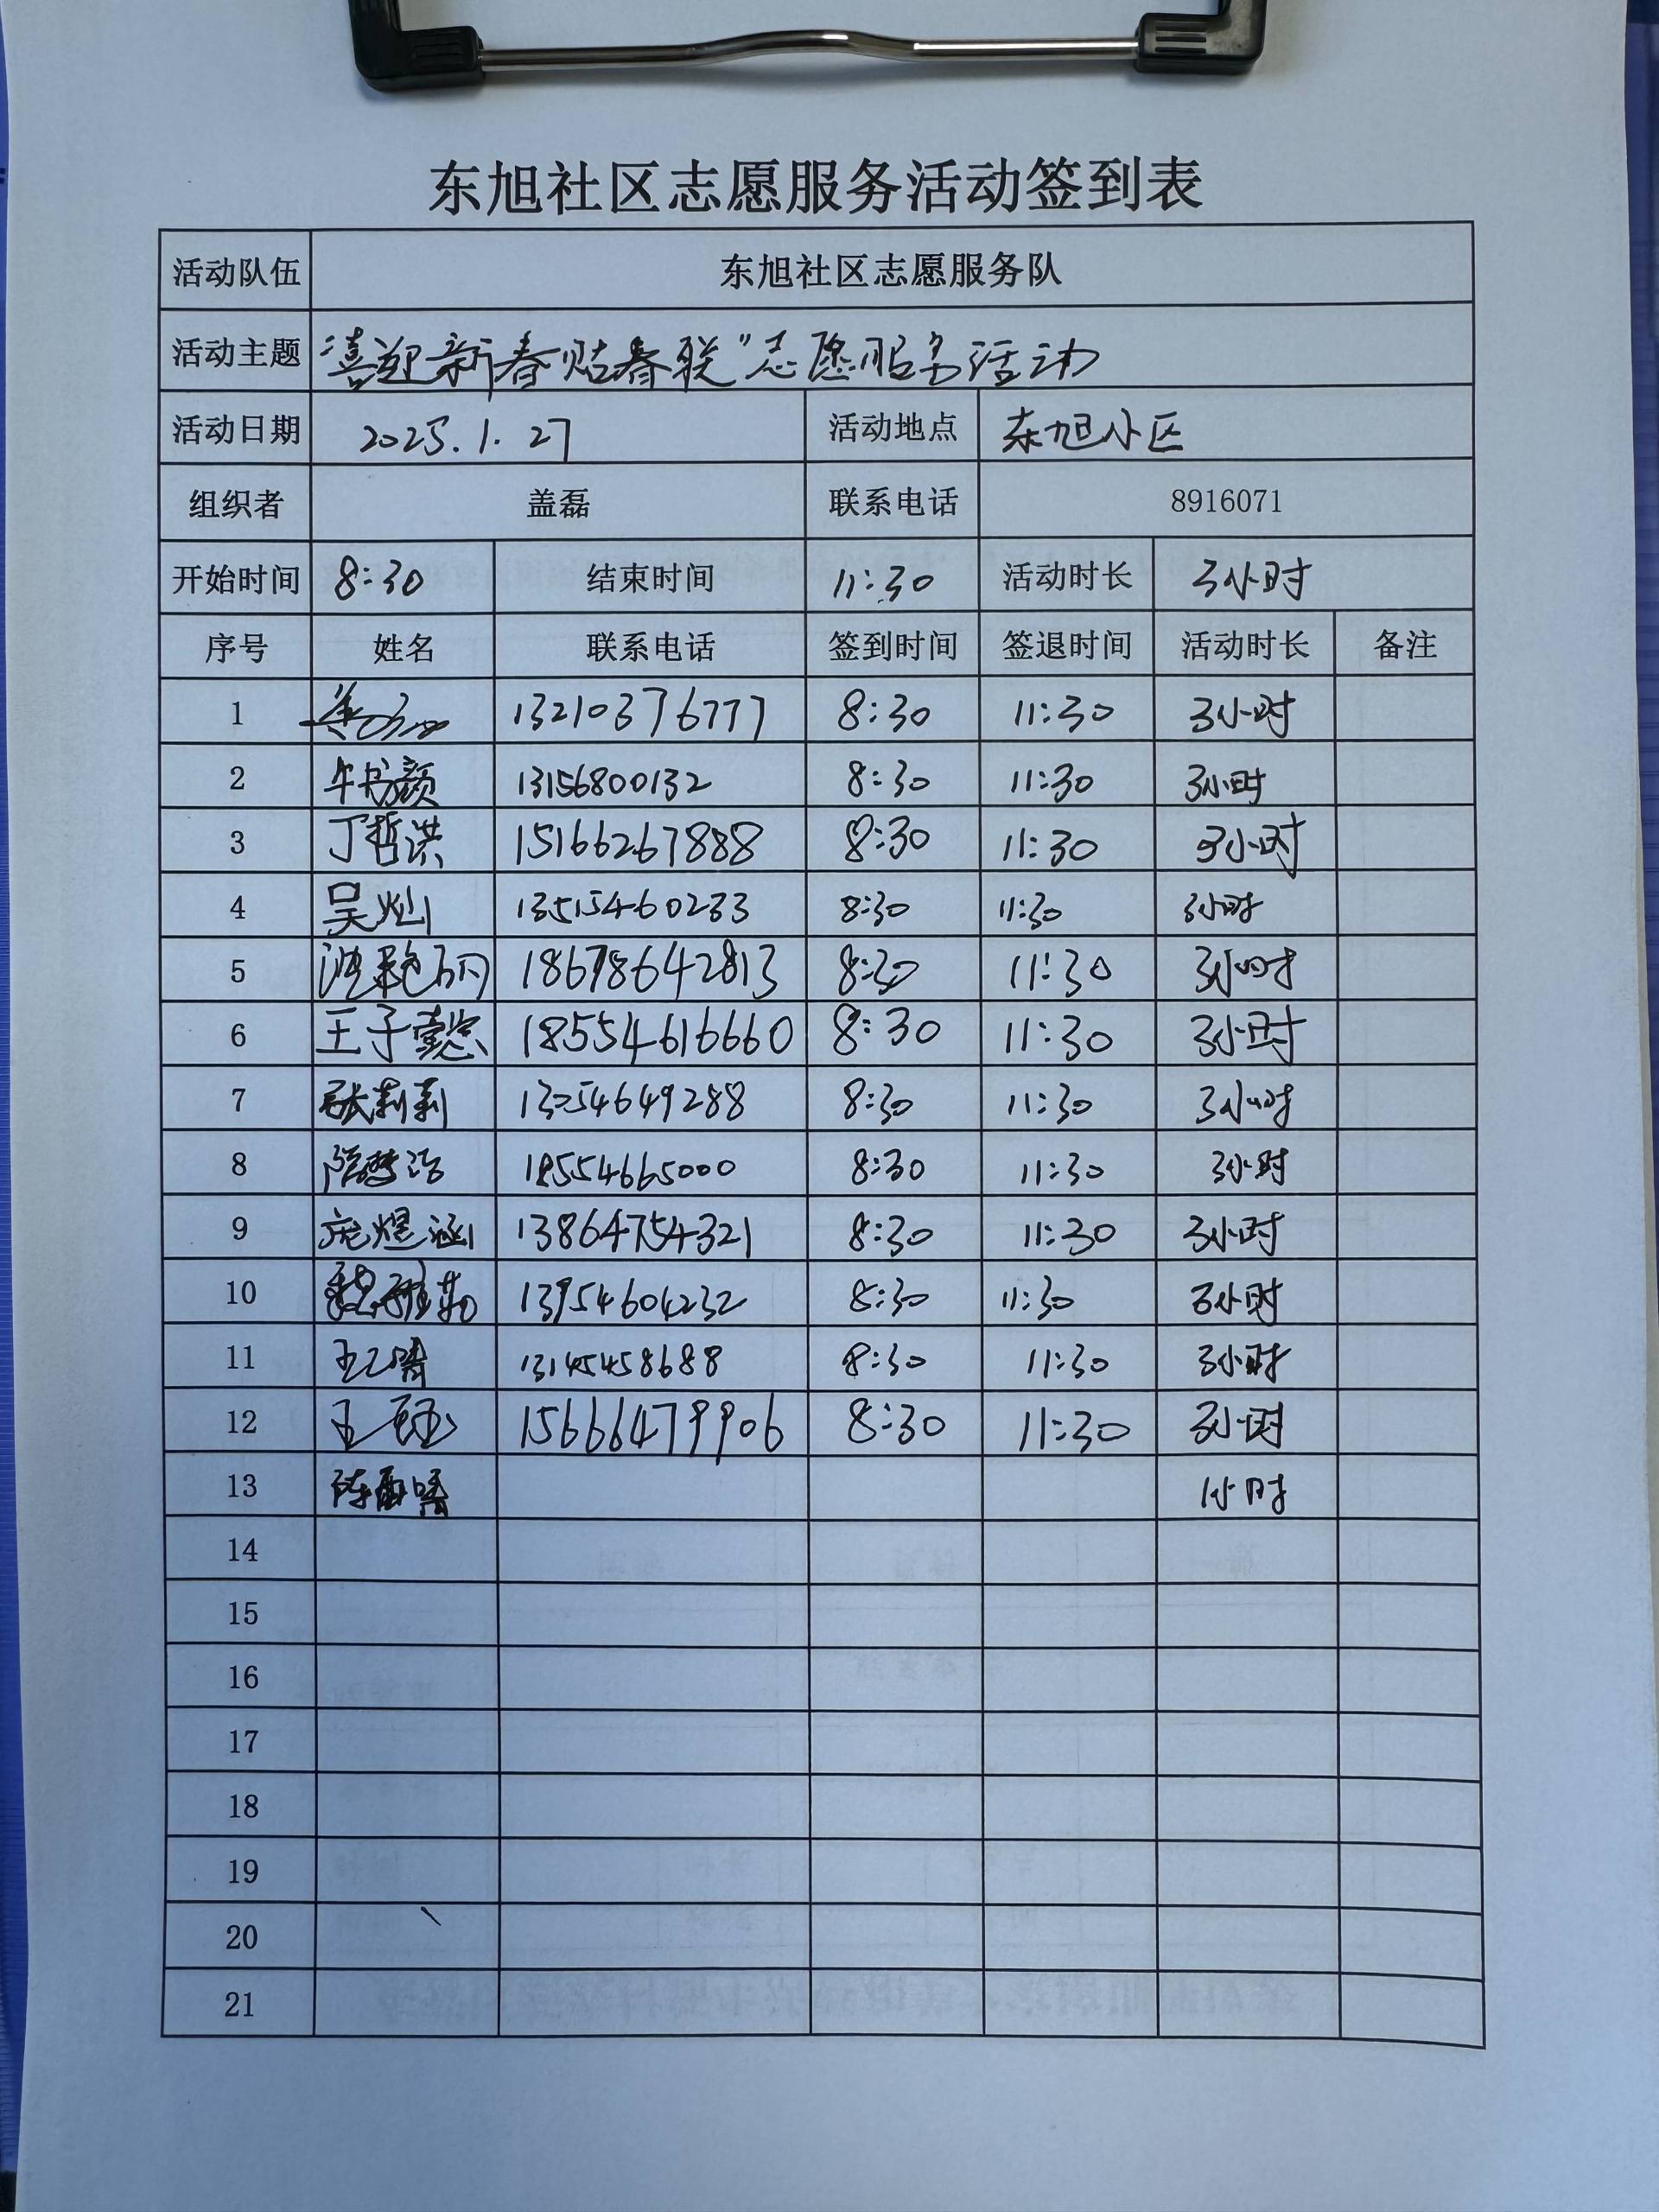 东旭社区志愿服务活动签到表
活动队伍 东旭社区志愿服务队
活动主题 “喜迎新春贴春联”志愿服务活动
活动日期 2025.1.27 活动地点 东旭小区
组织者 盖磊 联系电话 8916071
开始时间 8:30 结束时间 11:30 活动时长 3小时
序号 姓名 联系电话 签到时间 签退时间 活动时长 备注
1 13210376777 8:30 11:30 3小时
2 牛书颜 13156800132 8:30 11:30 3小时
3 丁哲洪 15166267888 8:30 11:30 3小时
4 吴灿 13515460233 8:30 11:30 3小时
5 18678642813 8:30 11:30 3小时
6 王子懿 18554616660 8:30 11:30 3小时
7 张莉莉 13054649288 8:30 11:30 3小时
8 18554665000 8:30 11:30 3小时
9 庞煜涵 13864754321 8:30 11:30 3小时
10 13954604232 8:30 11:30 3小时
11 13145458688 8:30 11:30 3小时
12 15666479906 8:30 11:30 3小时
13 1小时
14
15
16
17
18
19
20
21